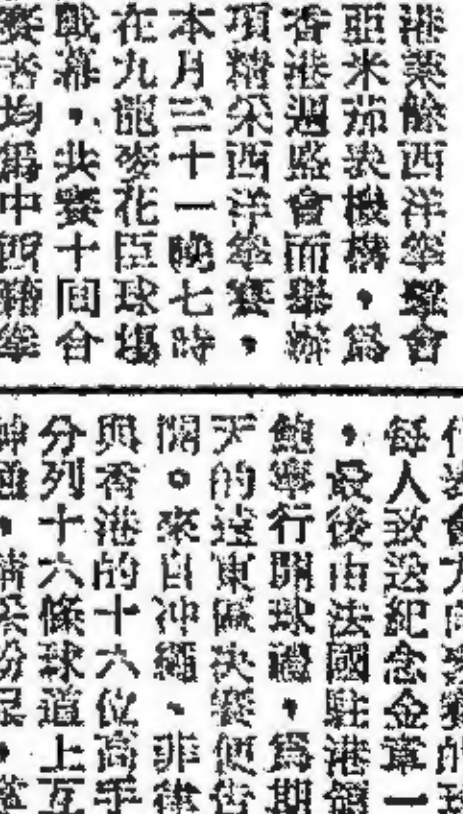 港業餘西洋拳聯會
亞米茄表機構,為
香港週監會而舉辦
項精采西洋拳賽,
本月三十一晚七時
在九龍麥花臣球場
戰幕,共賽十回合
賽者均為中西籍拳
每人致送紀念金章一
,最後由法國駐港領
鮑寧行開球禮,為期
天的遠東區決賽便告
開。來自沖繩、非律
與香港的十六位高手
分列十六條球道上互